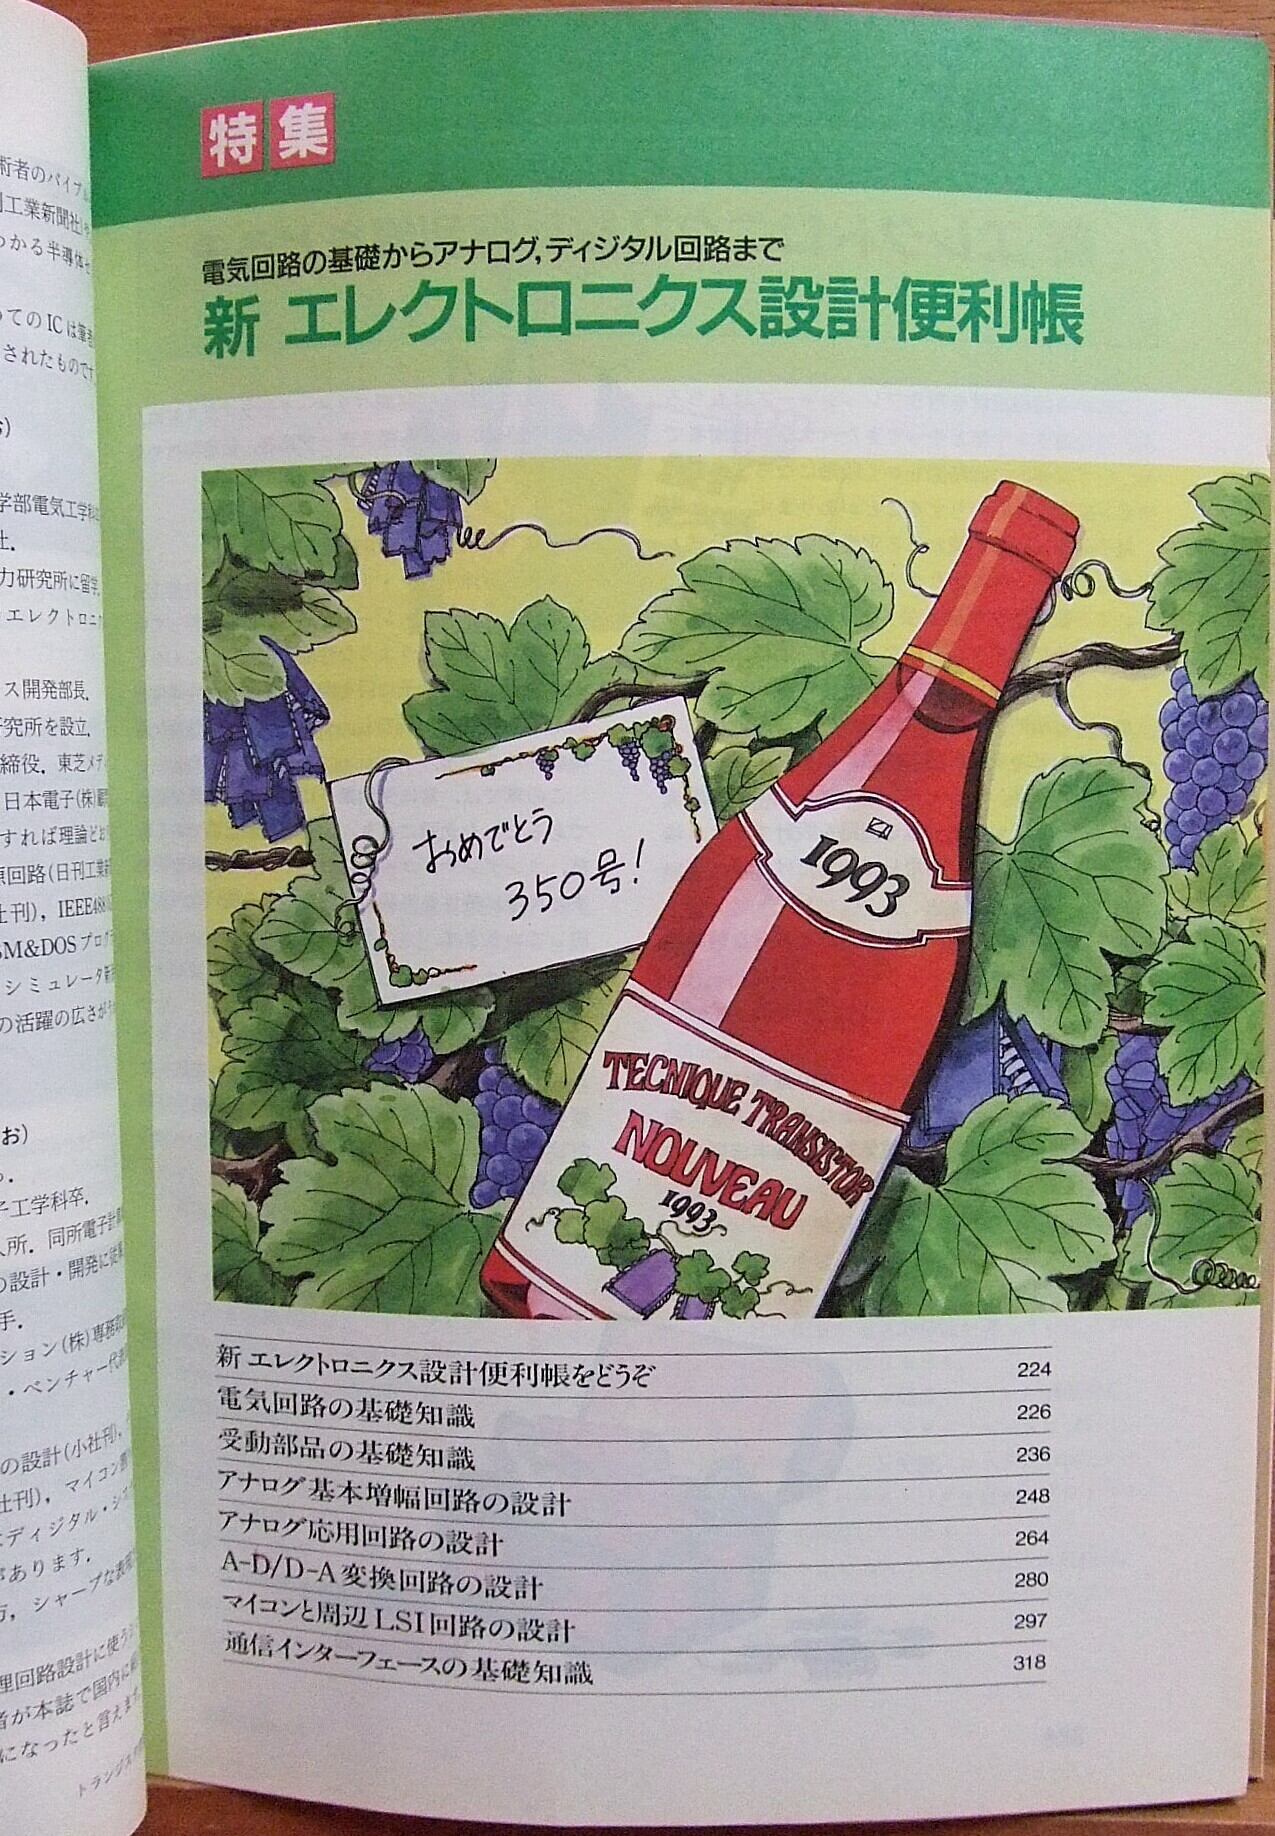 術者のバイブ
工業新聞社
つかる半導体セ
てのICは筆者
されたものです
学部電気工学科
社.
力研究所に留学,
エレクトロニ
ス開発部長.
研究所を設立.
締役. 東芝メデ
日本電子(株)顧
すれば理論どお
原回路(日刊工業
社刊), IEEE488
BM&DOSプログ
シミュレータ
の活躍の広さが
お)
子工学科卒.
入所. 同所電子計
の設計・開発に従
手.
ション(株)専務取
・ベンチャー代
の設計(小社刊),
社刊), マイコン
ディジタル・シス
があります.
シャープな表現
理回路設計に使う
者が本誌で国内に
になったと言えま
トランジス
特集
電気回路の基礎からアナログ,ディジタル回路まで
新 エレクトロニクス設計便利帳
おめでとう
350号!
1993
TECNIQUE TRANSISTOR
NOUVEAU
1993
新 エレクトロニクス設計便利帳をどうぞ 224
電気回路の基礎知識 226
受動部品の基礎知識 236
アナログ基本増幅回路の設計 248
アナログ応用回路の設計 264
A-D/D-A変換回路の設計 280
マイコンと周辺LSI回路の設計 297
通信インターフェースの基礎知識 318